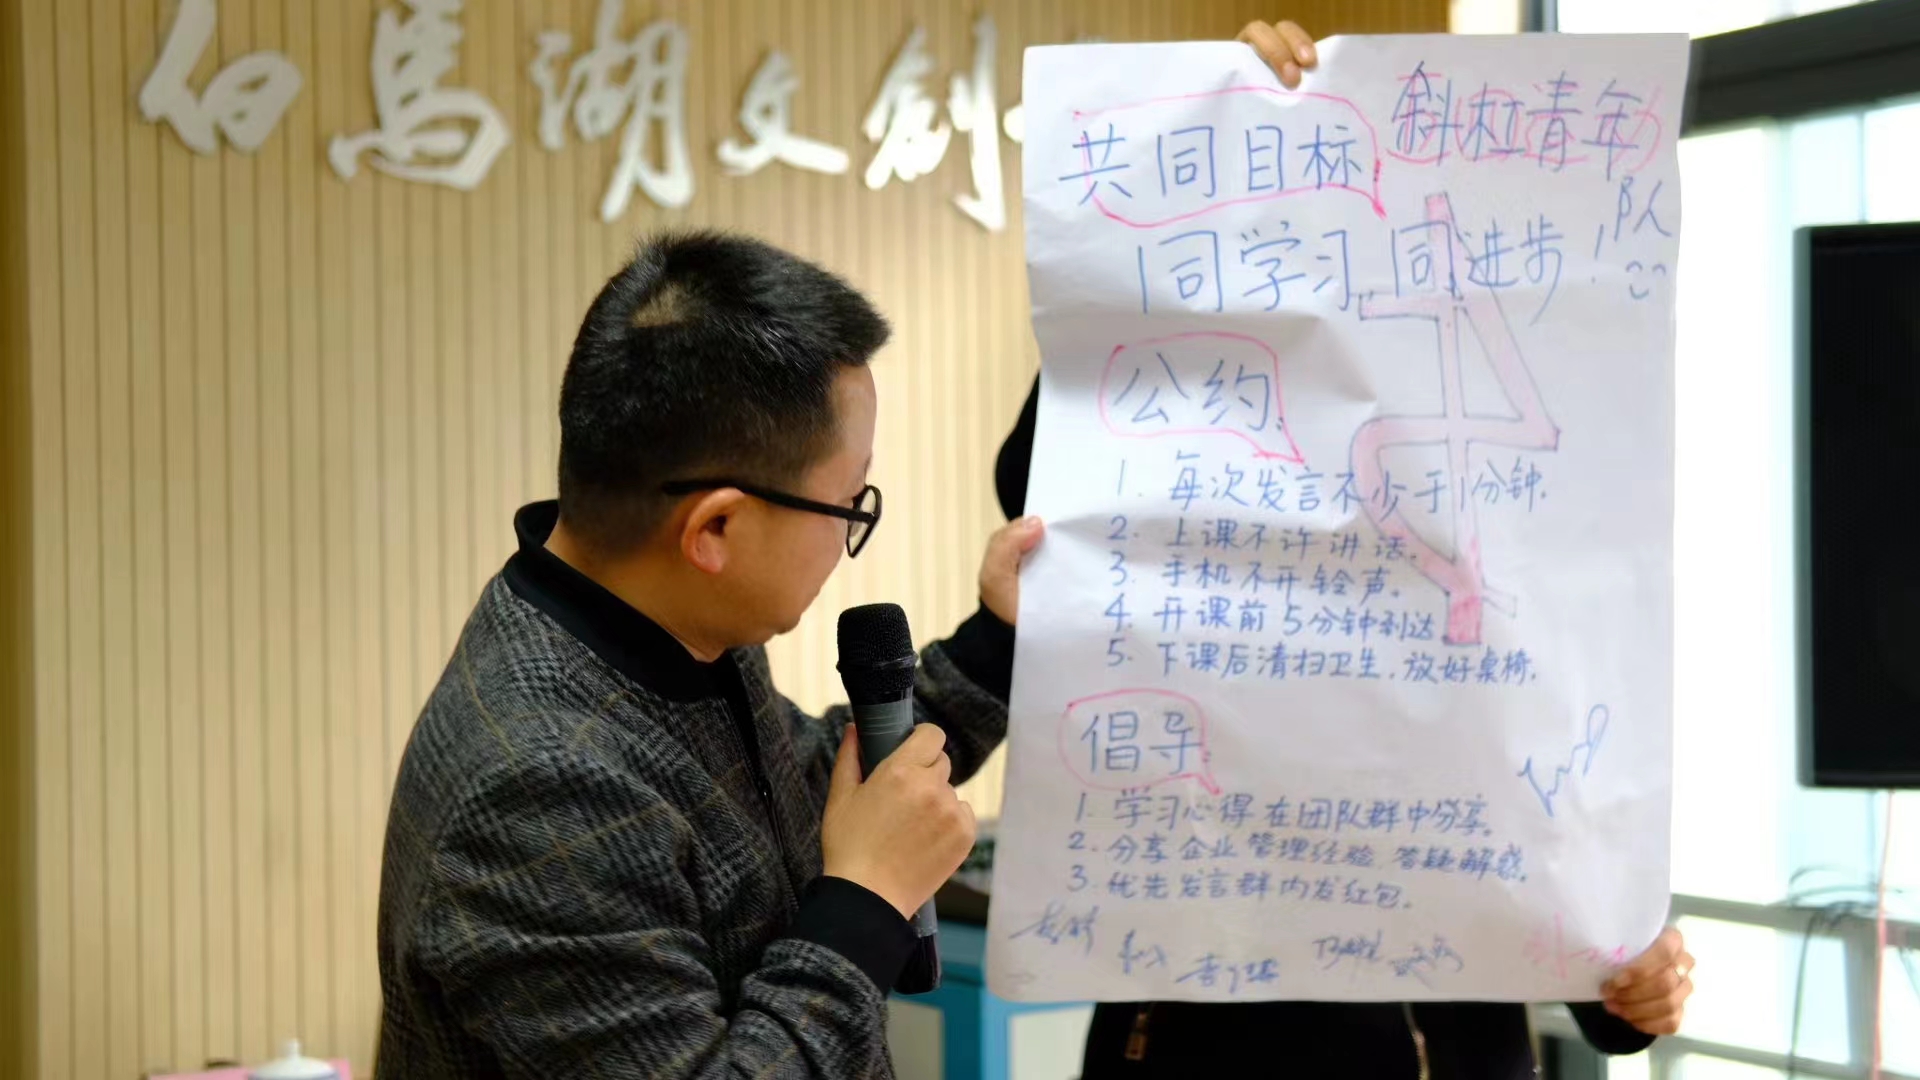 白馬湖文創
共同目标
斜杠青年
队
同学习 同进步!
公约:
1. 每次发言不少于1分钟.
2. 上课不许讲话.
3. 手机不开铃声.
4. 开课前5分钟到达
5. 下课后清扫卫生.放好桌椅.
倡导:
1. 学习心得在团队群中分享.
2. 分享企业管理经验.答疑解惑.
3. 优先发言群内发红包.